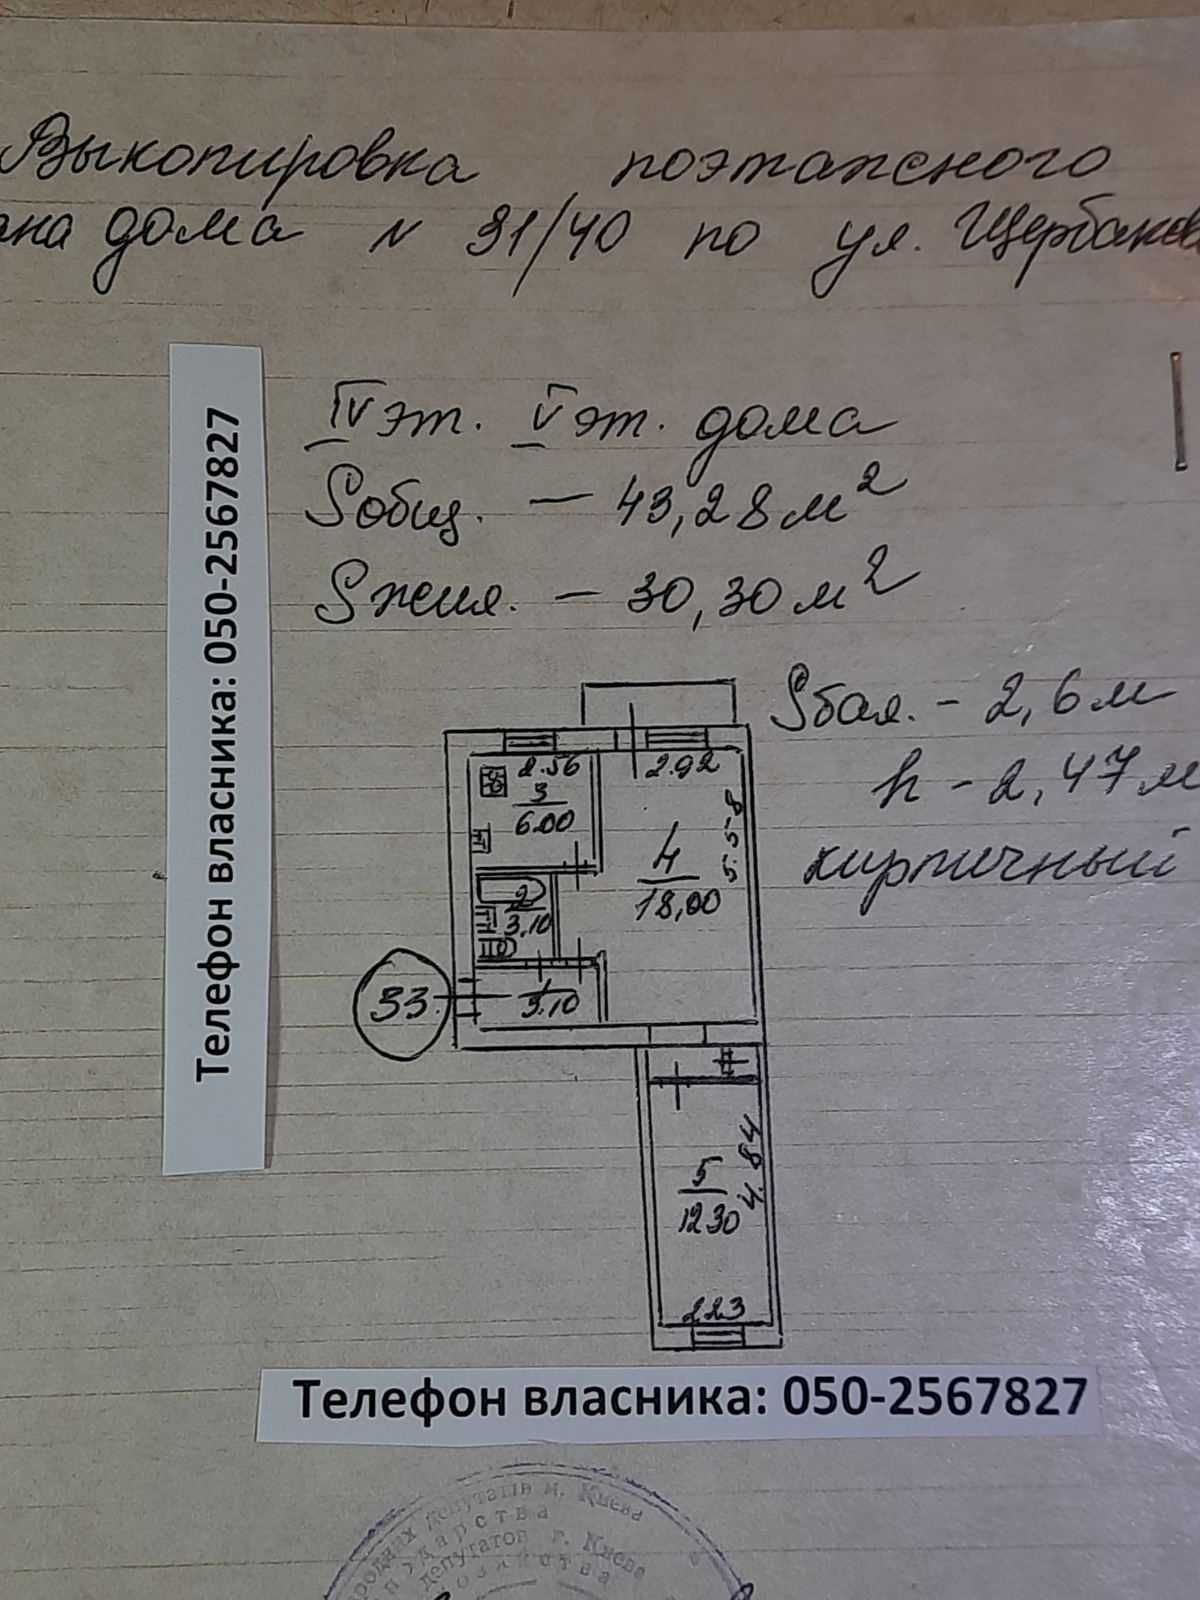 Выкопировка поэтажного
ана дома N 31/40 по ул. Щербаков
IV эт. V эт. дома
Sобщ. – 43,28 м²
Sжил. – 30,30 м²
Sбал. - 2,6 м
h - 2,47 м
кирпичный
Телефон власника: 050-2567827
2.56
2.92
3
6.00
5.58
4
18,00
2
3.10
33
1
3.10
4.84
5
12 30
2 23
Телефон власника: 050-2567827
родних депутатів м. Києва
депутатов г. Киева